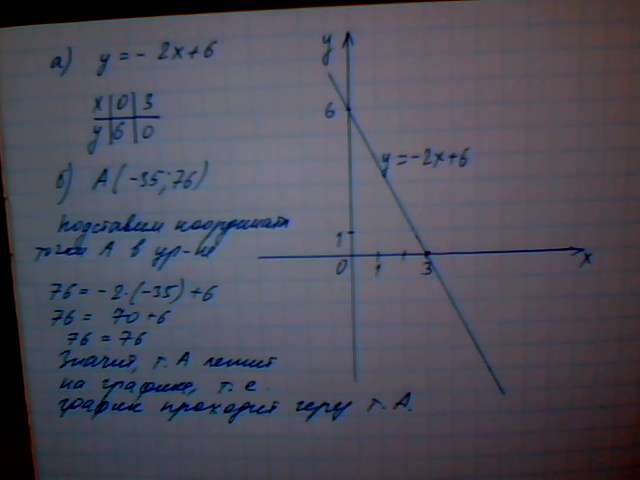 а) y = - 2x+6
x | 0 | 3
y | 6 | 0
б) A (-35; 76)
Подставим координаты
точки A в ур-не
76 = -2·(-35) +6
76 = 70 +6
76 = 76
Значит, т. A лежит
на графике, т. е.
график проходит через т. A.
y
6
y = -2x+6
1
0
1
3
x